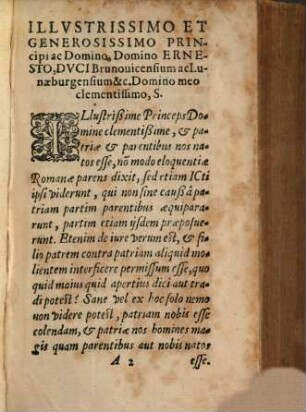 ILLVSTRISSIMO ET
GENEROSISSIMO PRIN-
cipi ac Domino, Domino ERNE-
STO, DVCI Brunouicensium ac Lu-
næburgensium &c. Domino meo
clementissimo, S.
ILlustrißime Princeps Do-
mine clementißime, & pa-
triæ & parentibus nos na-
tos esse, nō modo eloquentiæ
Romanæ parens dixit, sed etiam ICti
ipsi viderunt, qui non sine caußâ pa-
triam partim parentibus æquipara-
runt, partim etiam ijsdem præposue-
runt. Etenim de iure verum est, & fi-
lio patrem contra patriam aliquid mo-
lientem interficere permissum esse, quo
quid maius quid apertius dici aut tra-
di potest? Sane vel ex hoc solo nemo
non videre potest, patriam nobis esse
colendam, & patriæ nos homines ma-
gis quam parentibus aut nobis natos
A 2 esse.